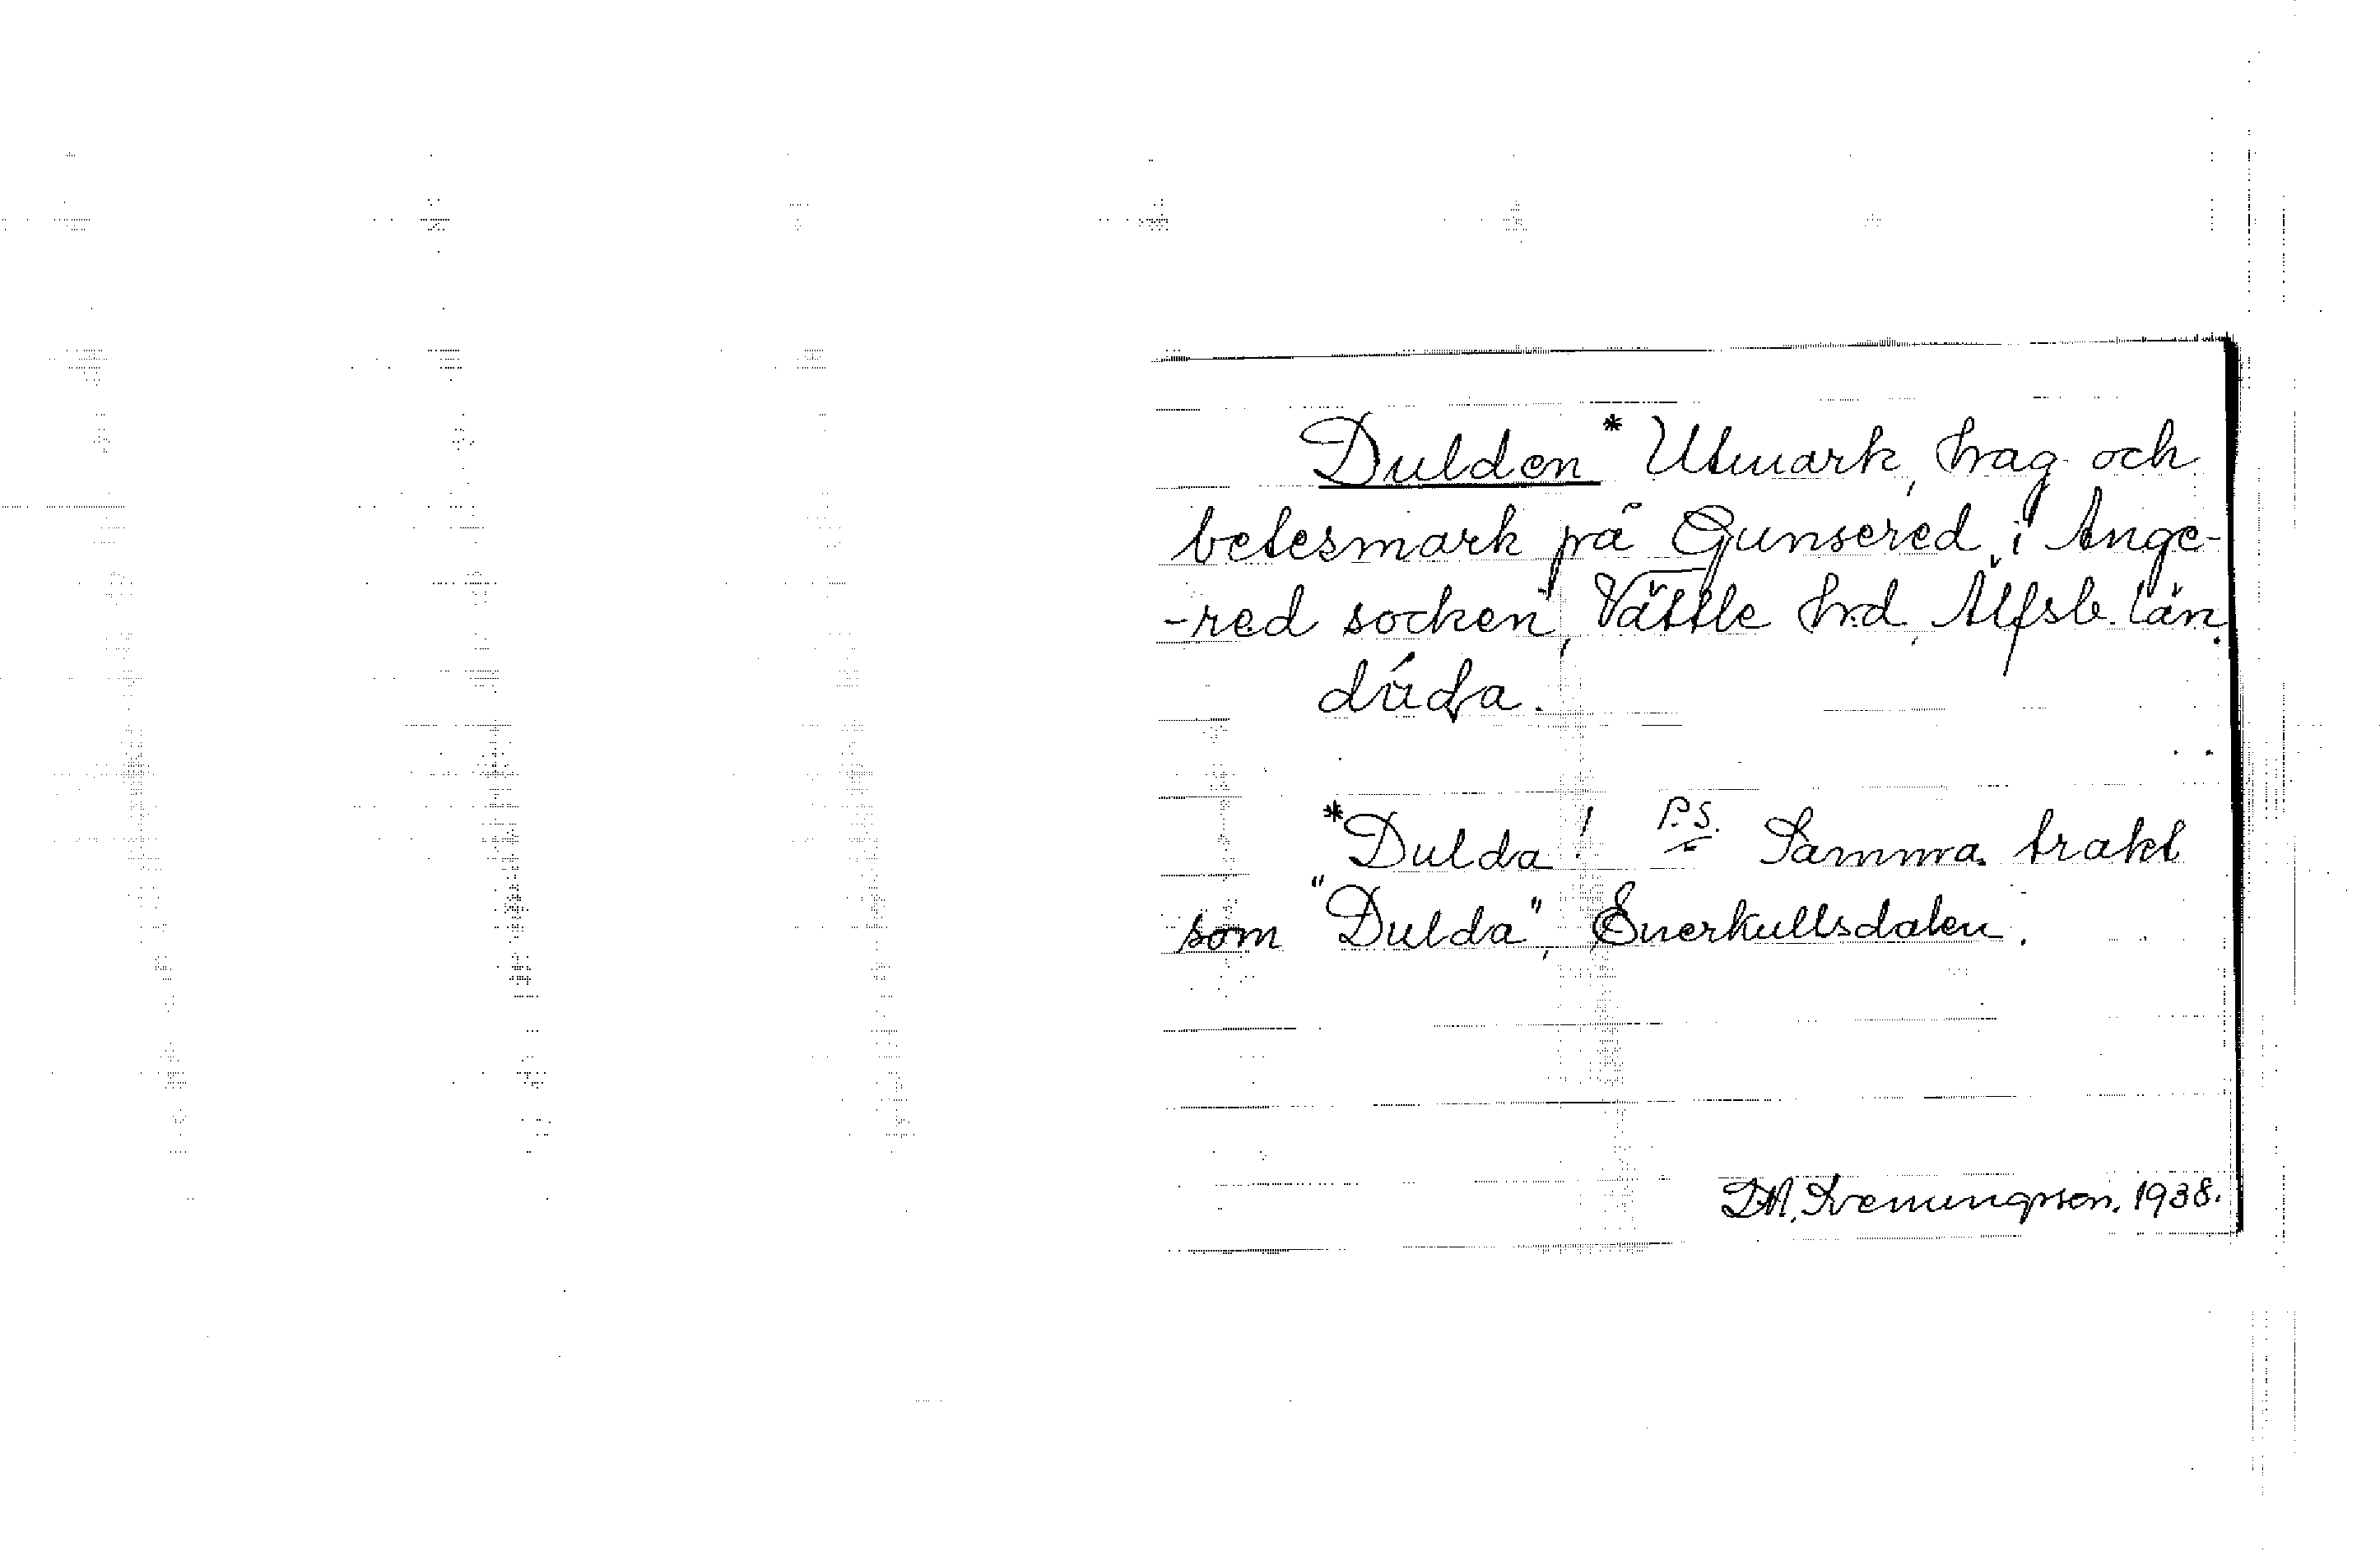 Dulden* Utmark, hag och
betesmark på Gunsered i Ange-
-red socken, Vättle hrd, Älfsb. län.
*Dulda! P.S. Samma trakt
som "Dulda", Enerkullsdalen.
1938.